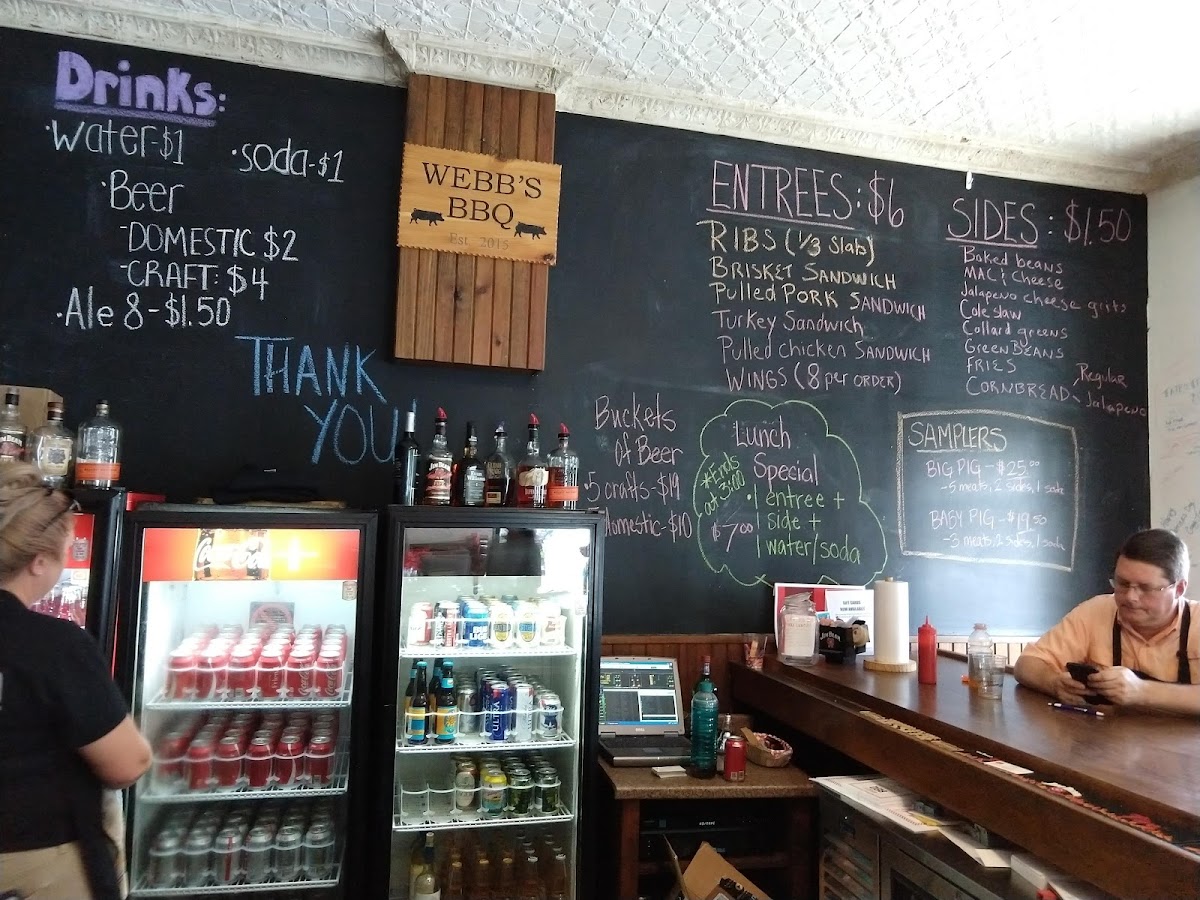 Drinks:
·Water-$1
·soda-$1
·Beer
-DOMESTIC $2
-CRAFT: $4
·Ale 8-$1.50
THANK
YOU
WEBB'S
BBQ
Est. 2015
ENTREES: $6
RIBS (1/3 Slab)
BRISKET SANDWICH
Pulled PORK SANDWICH
Turkey Sandwich
Pulled Chicken SANDWICH
WINGS (8 per ORDER)
SIDES: $1.50
Baked beans
MAC & Cheese
Jalapeno cheese grits
Cole slaw
Collard greens
Green BEANS
FRIES
CORNBREAD
Regular
Jalapeno
Buckets
Of Beer
·5 crafts-$19
Domestic-$10
Lunch
Special
*Ends
at 3:00
·1 entree +
1 side +
1 water/soda
$7.00
SAMPLERS
BIG PIG-$25.00
-5 meats, 2 sides, 1 soda
BABY PIG-$19.50
-3 meats, 2 sides, 1 soda
Coca-Cola
JIM BEAM
BUD
LIGHT
DELL